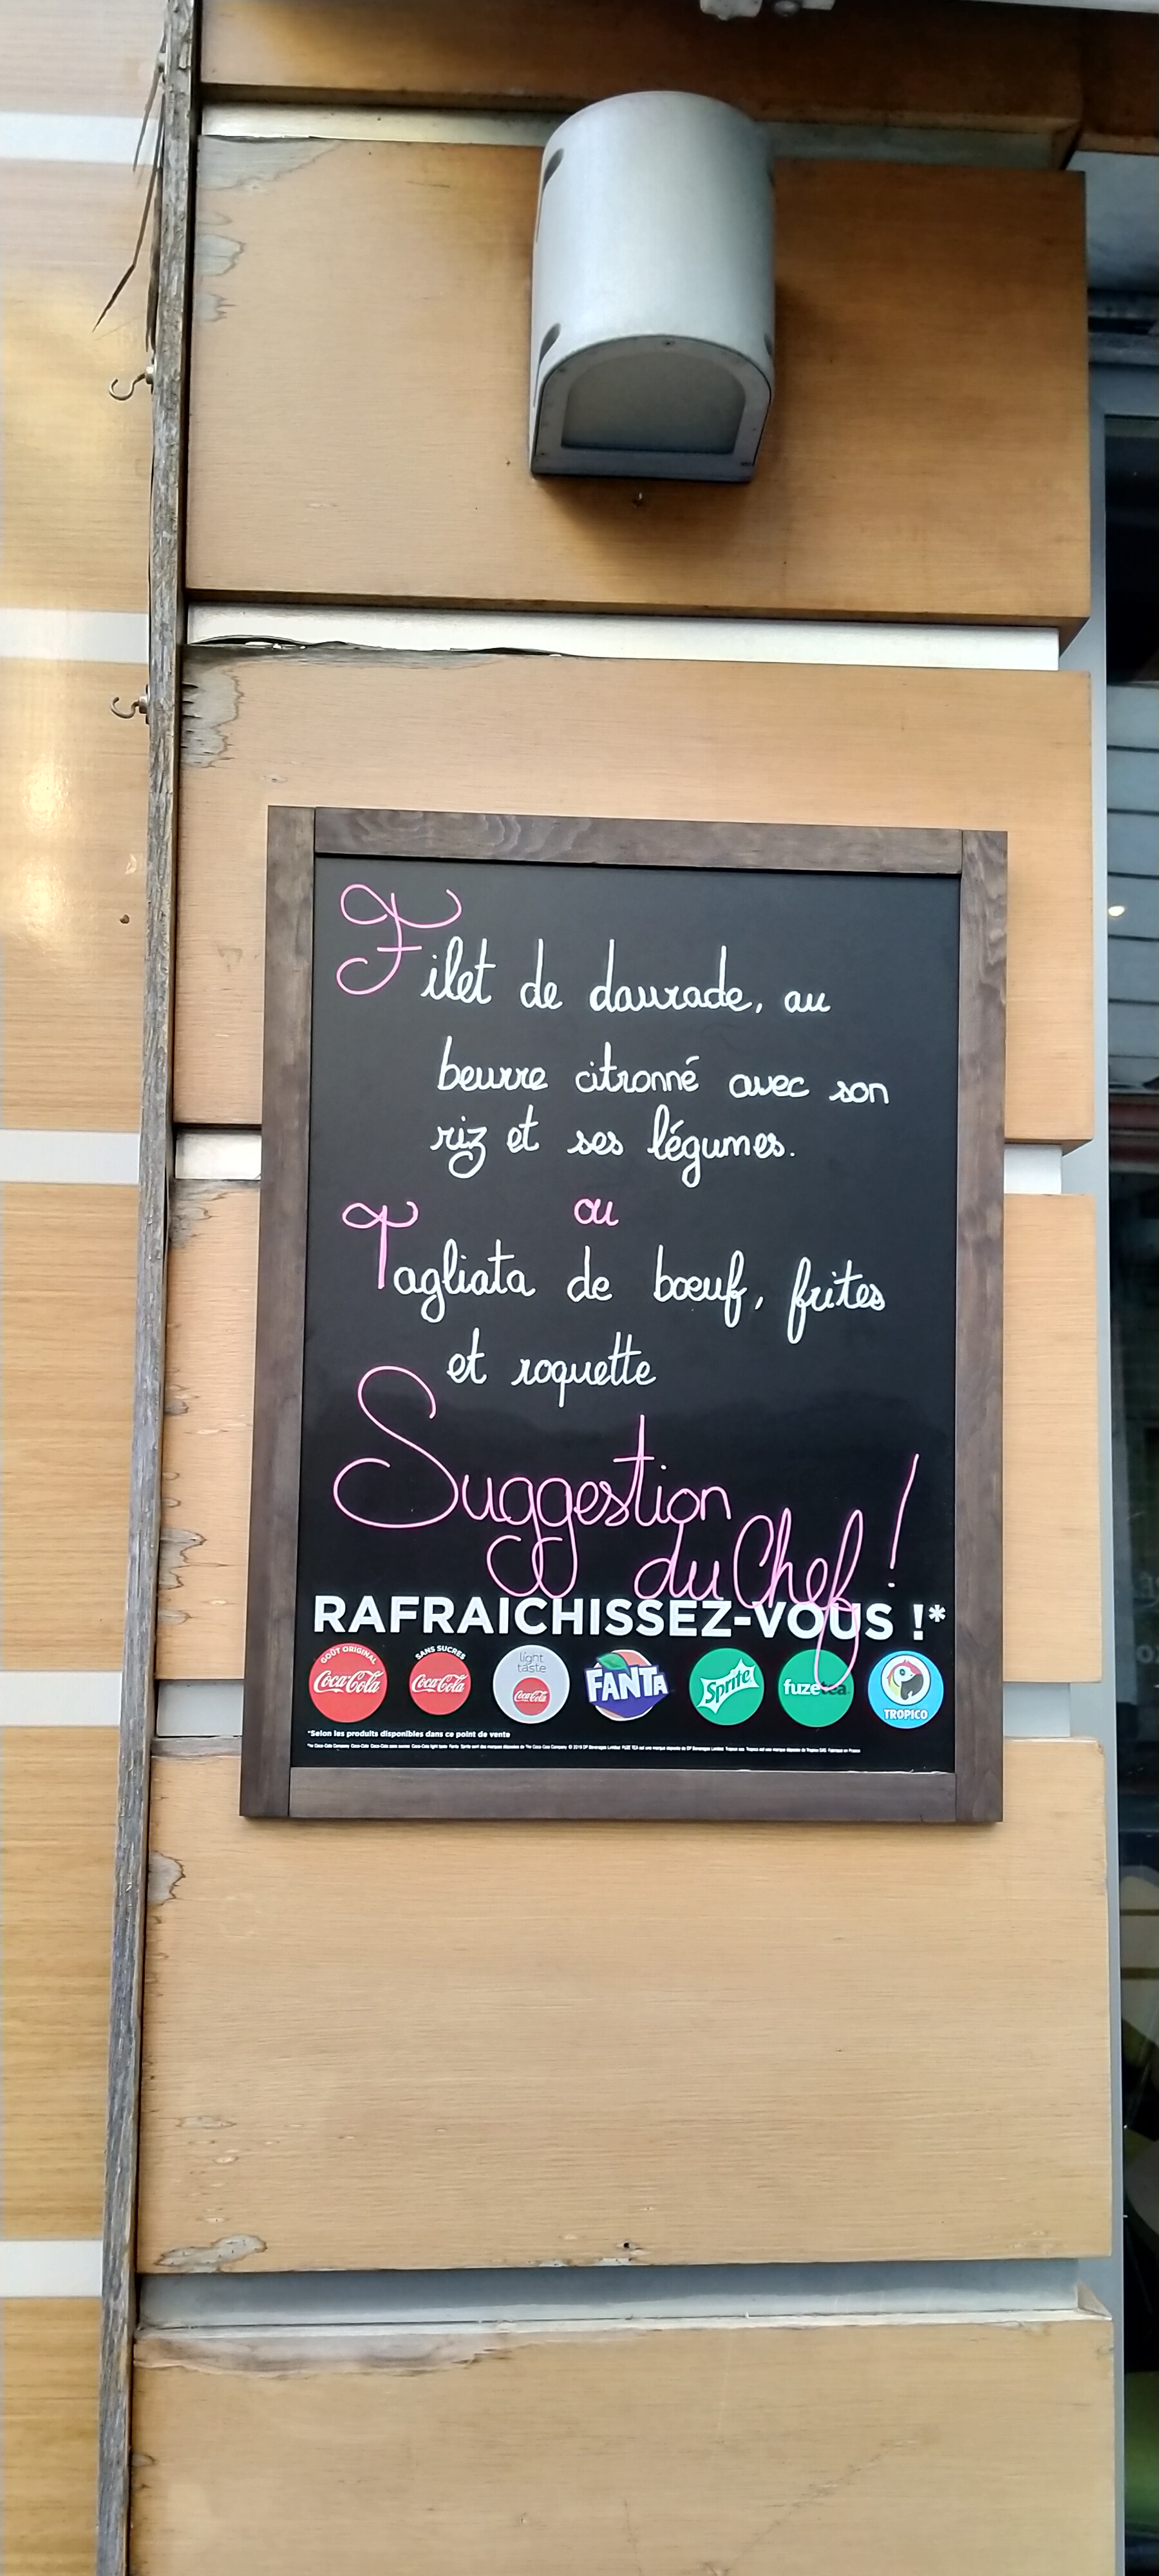 Filet de daurade, au
beurre citronné avec son
riz et ses légumes.
ou
Tagliata de bœuf, frites
et roquette
Suggestion
du Chef !
RAFRAICHISSEZ-VOUS !*
GOÛT ORIGINAL
Coca-Cola
SANS SUCRES
Coca-Cola
light
taste
Coca-Cola
FANTA
Sprite
fuze tea
TROPICO
*Selon les produits disponibles dans ce point de vente